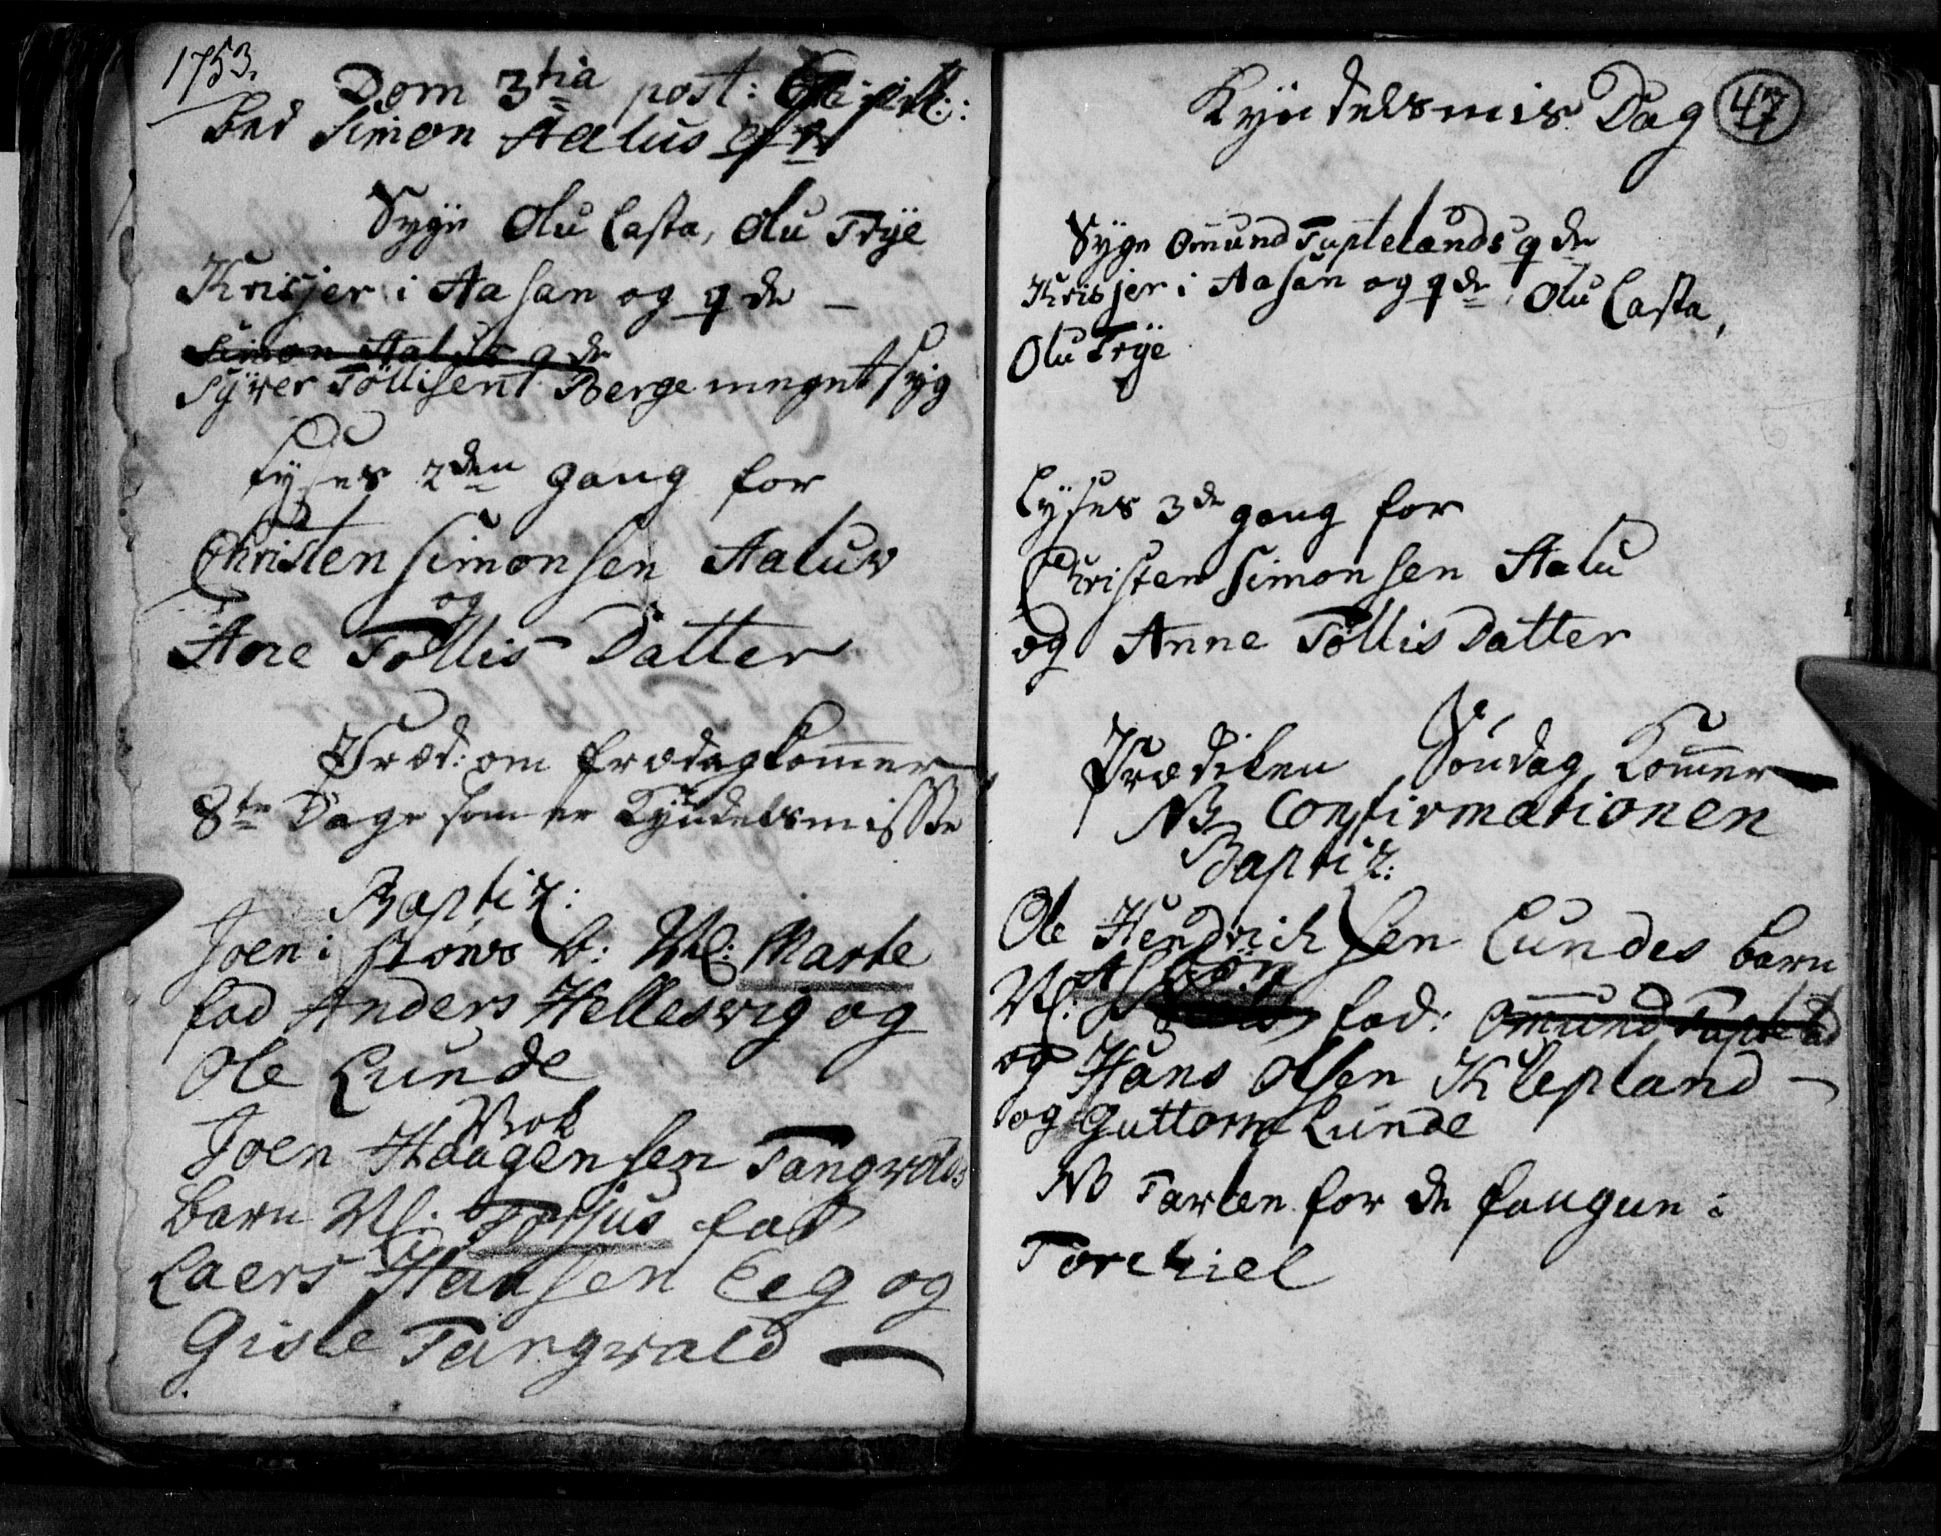 1753.
Dom 3tia post: Epiph:
bed Simon Aalus
Syge Olu Casta, Olu Trye
Krisjer i Aasan og qde —
Simon Aalus qde
Syver Tóllisens Berge meget syg
Lyses 2den gang for
Christen Simonsen Aaluv
og
Ane Tóllis Datter
Præd: om fredag kommer
8te Dage som er Kyndelsmisse
Baptiz:
Joen i Stóns b: Nl: Marte
fad Anders Hellesvig og
Ole Lunde
Bok
Joen Haagensen Tangvolds
barn Nl. Torjus fad
Laers Hansen Eeg og
Gisle Tangvald —
Kyndelsmis Dag
47
Syge Omund Tuptelands qde
Krisjer i Aasan og qde Olu Casta,
Olu Trye
Lyses 3de gang for
Christen Simonsen Aalu
og Anne Tóllis Datter
Prædiken Sóndag kommer
NB Confirmationen
Baptiz:
Ole Hendrichsen Lundes barn
Nl: fad: Omund Tupteland
og Hans Olsen Klepland —
og Guttorm Lunde
NB Tavlen for de fangne i